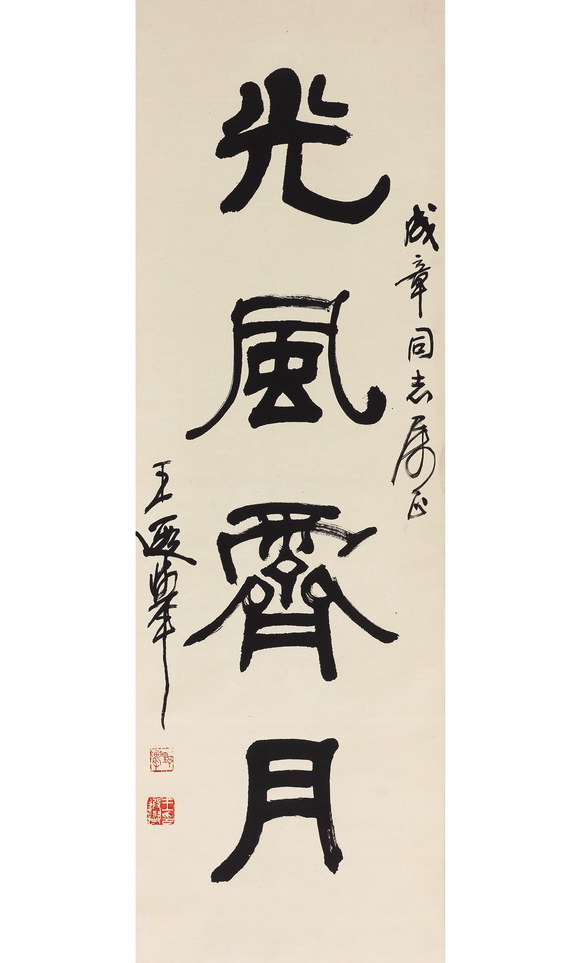 成章同志属正
光風霽月
王遐舉